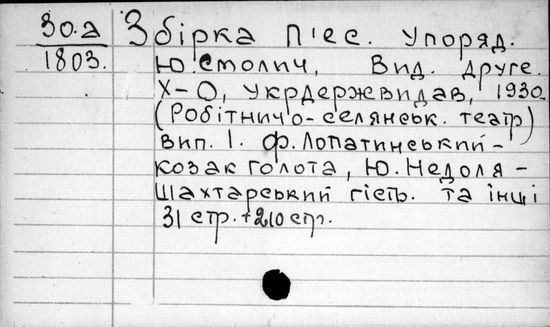 30.а
1803.
Збірка п'єс. Упоряд.
Ю. Столич, Вид. друге.
Х-О, Укрдержвидав, 1930.
(Робітничо-селянськ. театр)
Вип. 1. Ф. Лопатинський -
козак Голота, Ю. Недоля -
Шахтарський гість. та інші
31 стр. + 210 стр.